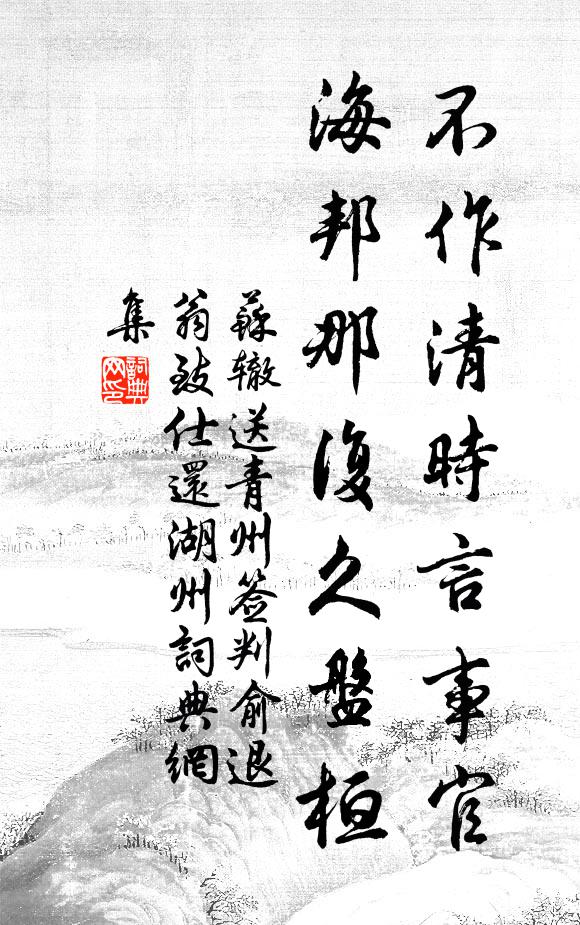 不作清時言事官
海邦那復久盤桓
蘇辙送青州签判俞退
翁致仕還湖州詞典網
集
詞典
网印